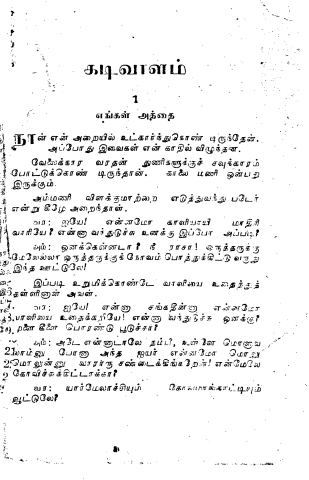 கடிவாளம்
1
எங்கள் அத்தை
நான் என் அறையில் உட்கார்ந்துகொண் டிருந்தேன்.
அப்போது இவைகள் என் காதில் விழுந்தன.
வேலைக்கார வரதன் துணிகளுக்குச் சவுக்காரம்
போட்டுக்கொண் டிருந்தான். காலை மணி ஒன்பது
இருக்கும்.
அம்மணி விளக்குமாற்றை எடுத்துவந்து படேர்
என்று கீழே அறைந்தாள்.
வர: ஐயே! என்னமோ காளியாயி மாதிரி
வாரியே? என்னா வந்துடுச்சு உனக்கு இப்போ அப்படி?
அம்: ஒனக்கென்னடா? நீ ராசா! ஒருத்தருக்கு
மேலேல்லா ஒருத்தருக்குக் கோவம் பொத்துக்கிட்டு வருது
இந்த ஊட்டுலே!
இப்படி உறுமிக்கொண்டே வாளியை உதைத்துத்
தள்ளினாள் அவள்.
வர: ஐயே! என்னா சங்கதின்னு என்னமோ
வாளியை உதைக்கறியே! என்னா வந்துடுச்சு ஒனக்கு?
பொரண்டு பூடுச்சா?
அம்: அடே என்னாடாலே தம்பி, உள்ளே
போனா அந்த ஐயர் என்னமோ மொறு
மொறுன்னு என்மேலே
கோவிச்சுக்கிட்டாக்கா?
வர: யார்மேலாச்சியும்
வூட்டுலே?